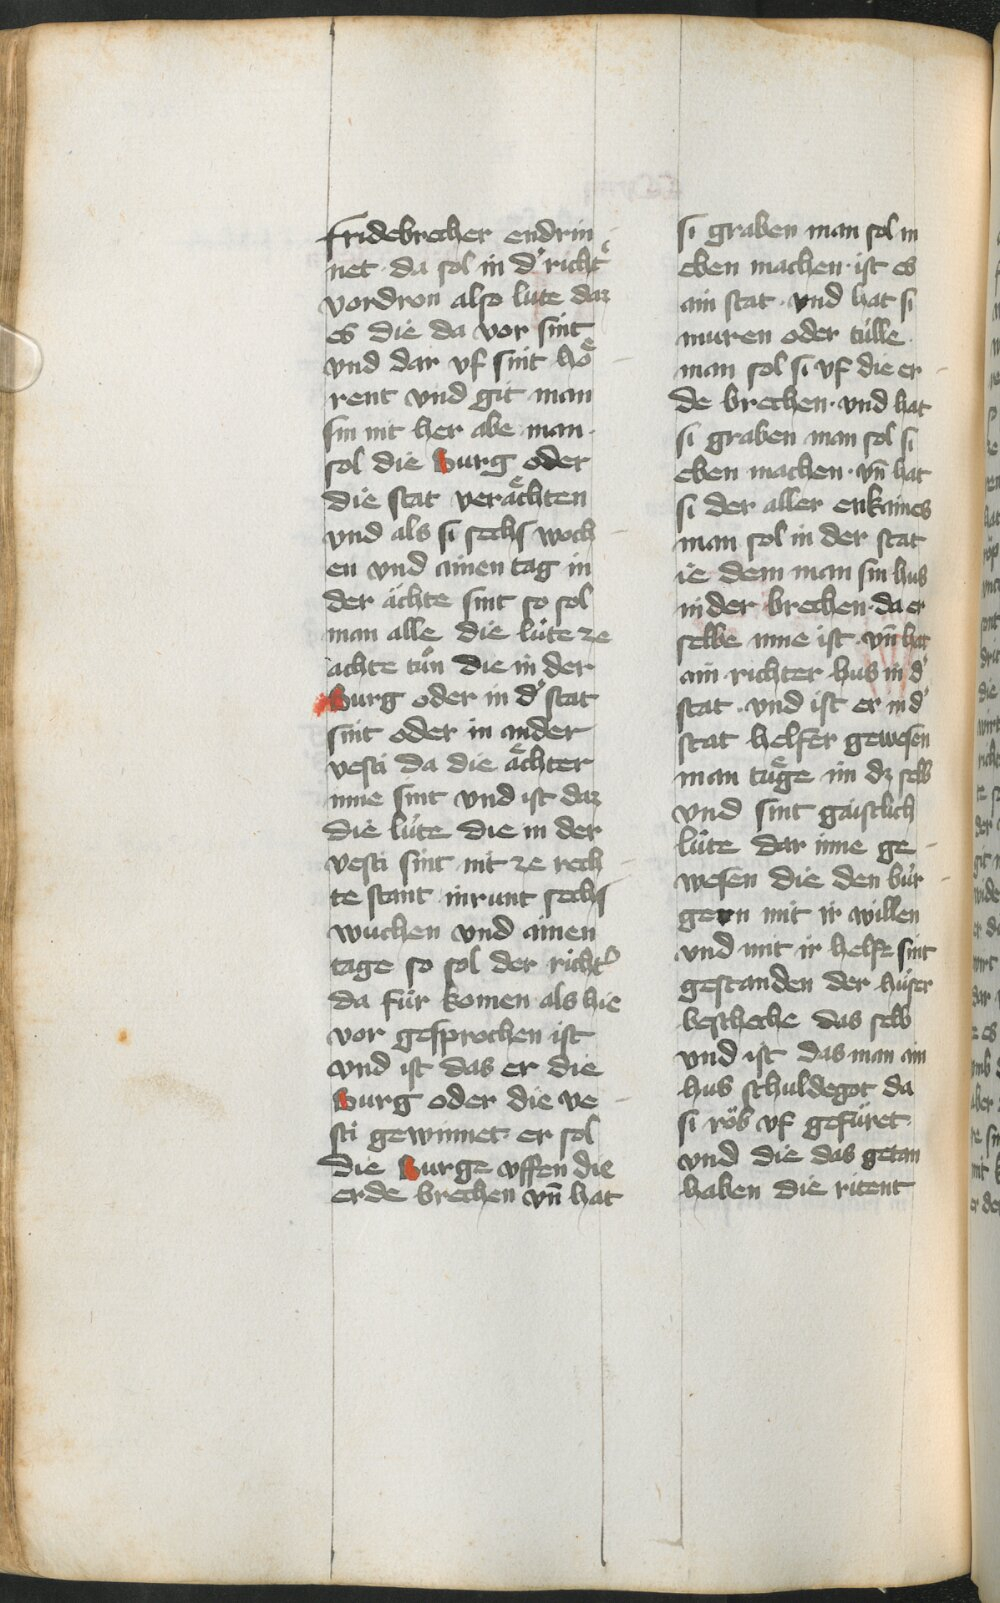 fridebrecher endrin
net · da sol in d' richt'
vordron also lute daz
es die da vor sint
vnd dar vf sint hoͤ
rent vnd git man
sin nit her abe man ·
sol die burg oder
die stat veraͤchten
vnd als si sechs woch
en vnd ainen tag in
der ächte sint so sol
man alle die lüte ze
achte tůn die in der
burg oder in d' stat
sint oder in ander
vesti da die aͤchter
inne sint vnd ist daz
die lüte die in der
vesti sint nit ze rech
te stant inrunt sechs
wuchen vnd ainen
tage so sol der richt'
da für komen als hie
vor gesprochen ist
vnd ist das er die
burg oder die ve
sti gewinnet · er sol
die burge vffen die
erde brechen vn̄ hat
si graben man sol in
eben machen · ist es
ain stat · vnd hat si
muren oder tülle ·
man sol si vf die er
de brechen · vnd hat
si graben man sol si
eben machen · vn̄ hat
si der aller enkaines
man sol in der stat
ie dem man sin hus
nider brechen · da er
selbe inne ist · vn̄ hat
ain richter hus in d'
stat · vnd ist er in d'
stat helfer gewesen
man tuͤge im dz selb
vnd sint gaistlich
lüte dar inne ge
wesen die den bur
gern mit ir willen
vnd mit ir helfe sint
gestanden der hüser
bescheche das selb
vnd ist das man ain
hus schuldegot da
si röb vf gefüret ·
vnd die das getan
haben die ritent